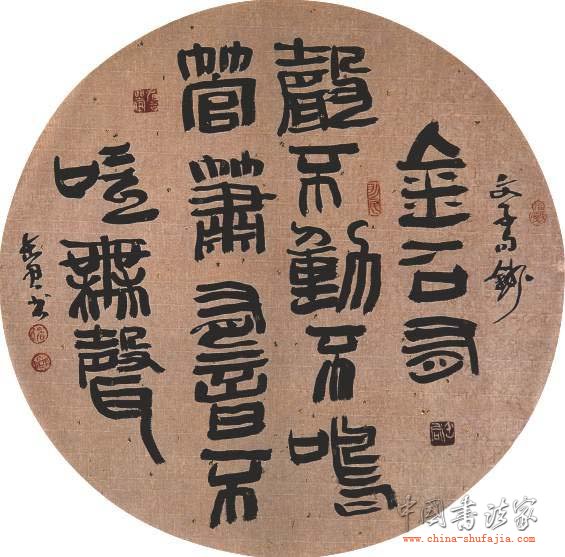 金石有
聲不動不鳴
管簫有音不
吹無聲
中國書法家
www.china-shufajia.com